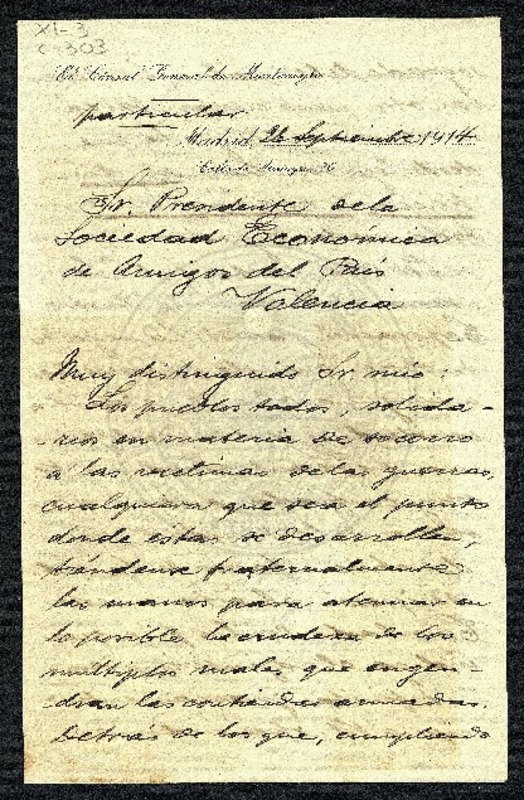 XI-3
C-303
El Consul General de Montenegro
particular
Madrid, 26 Septiembre 1914
Sr. Presidente de la
Sociedad Económica
de Amigos del País
Valencia
Muy distinguido Sr. mio:
Los pueblos todos, solida-
-rios en materia de socorro
a las victimas de las guerras,
cualquiera que sea el punto
donde éstas se desarrollen,
tiéndense fraternalmente
las manos para atenuar en
lo posible la crudeza de los
múltiples males que engen-
dran las contiendas armadas.
Detrás de los que, cumpliendo